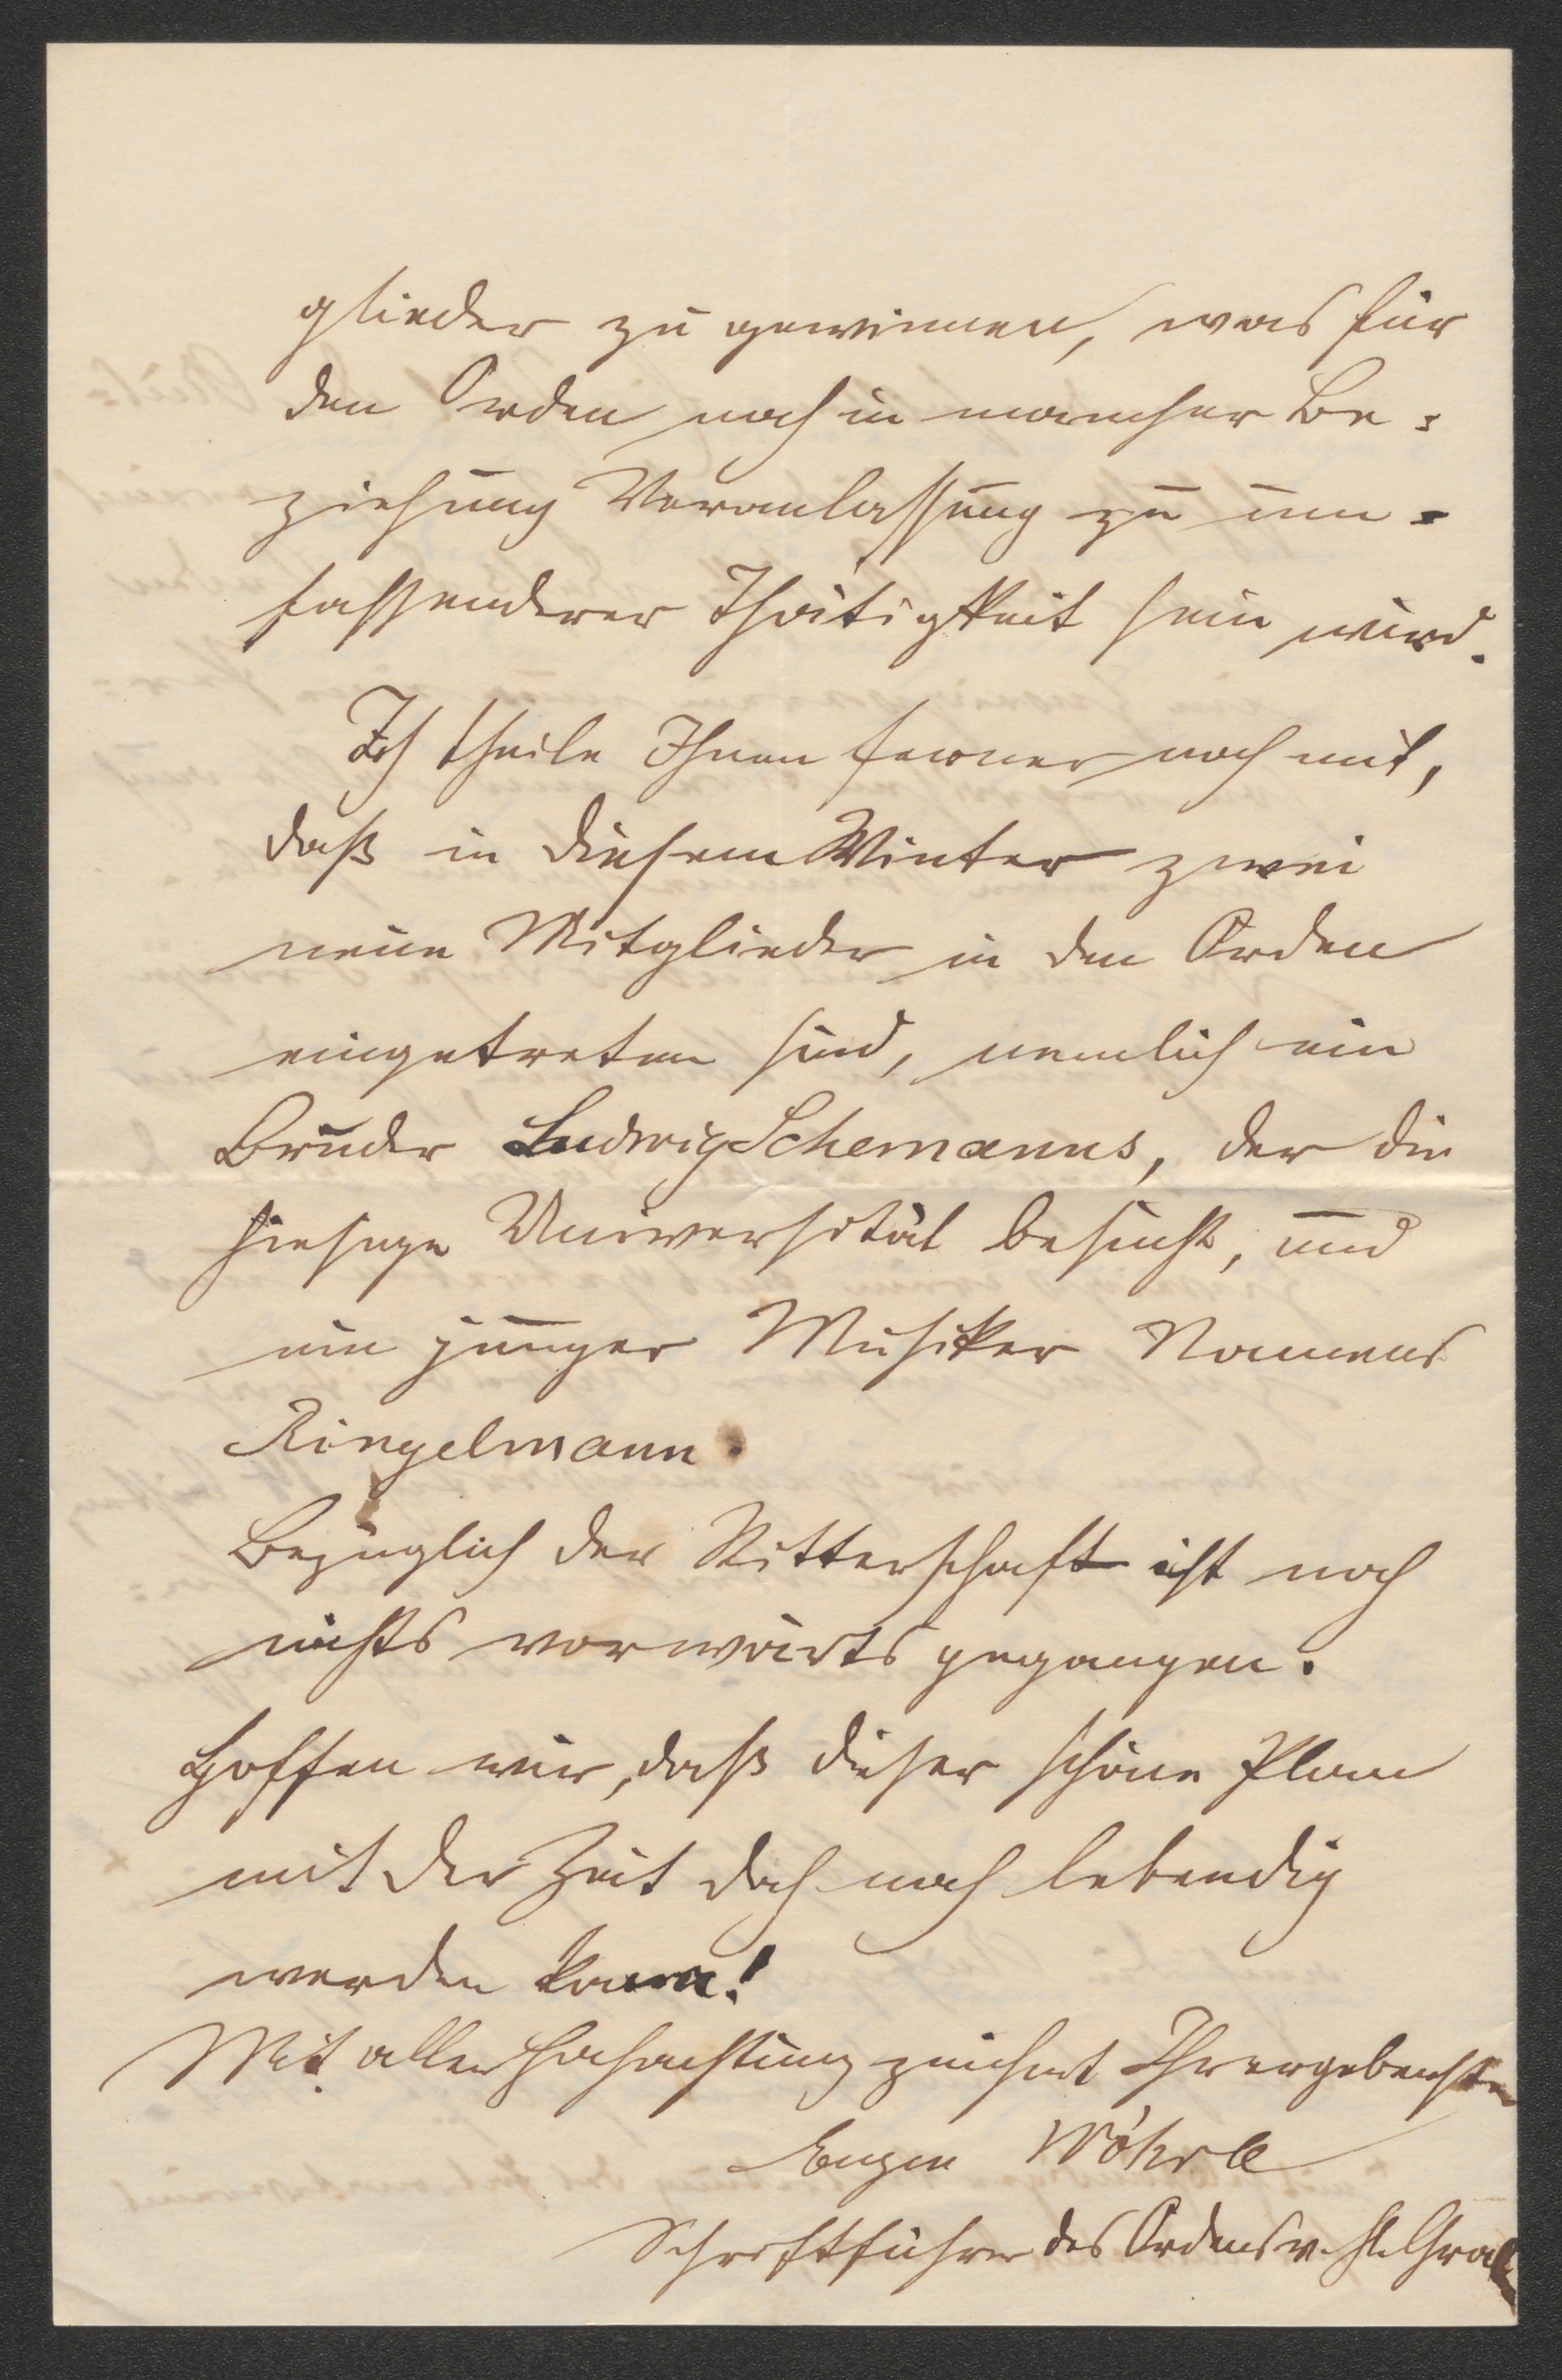 glieder zu gewinnen, was für
den Orden noch in mancher Be-
ziehung Veranlassung zu um-
fassenderer Thätigkeit sein wird.
Ich theile Ihnen ferner noch mit,
daß in diesem Winter zwei
neue Mitglieder in den Orden
eingetreten sind, nemlich ein
Bruder Ludwig Schemanns, der die
hiesige Universität besucht, und
ein junger Musiker Namens
Ringelmann.
Bezüglich der Ritterschaft ist noch
nichts vorwärts gegangen.
Hoffen wir, daß dieser schöne Plan
mit der Zeit doch noch lebendig
werden kann!
Mit aller Hochachtung zeichnet Ihr ergebenster
Eugen Wöhrle
Schriftführer des Ordens v. hl. Gral